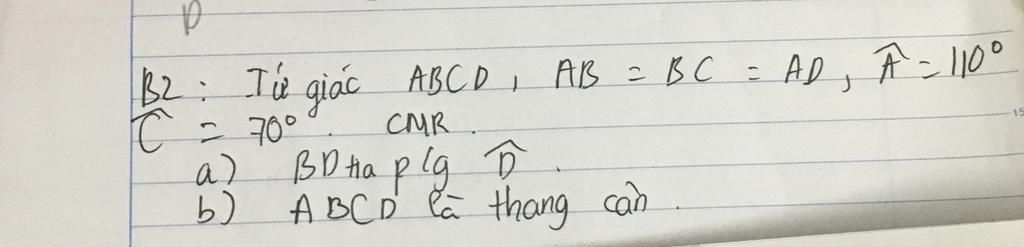 D
B2: Tứ giác ABCD, AB = BC = AD, Â = 110°
Ĉ = 70°. CMR.
a) BD tia p/g D̂.
b) ABCD là thang cân.
15